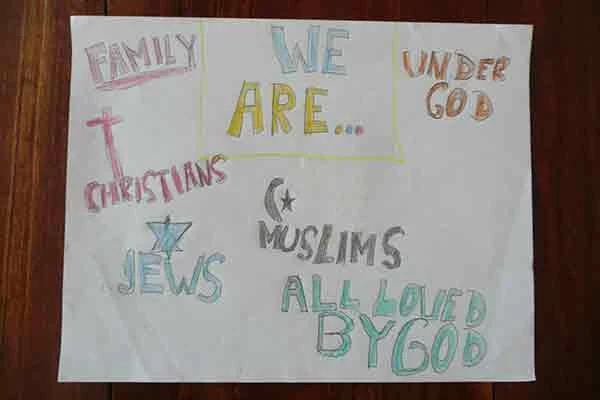 FAMILY
WE
ARE...
UNDER
GOD
CHRISTIANS
JEWS
MUSLIMS
ALL LOVED
BY GOD